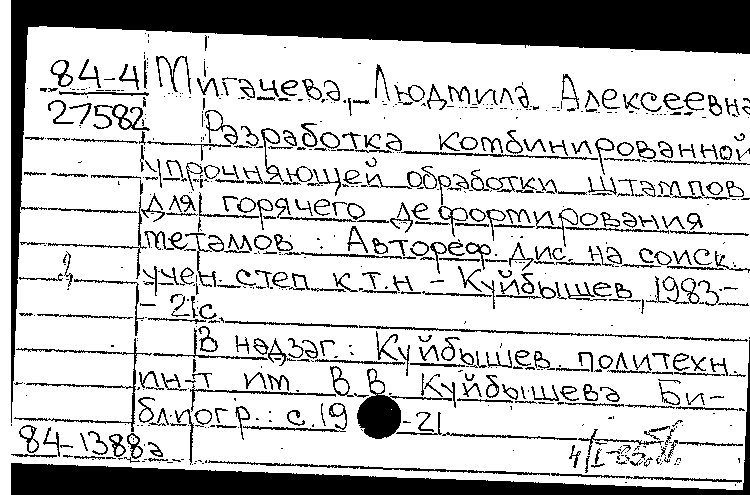 84-4 Мигачева, Людмила Алексеевна
27582 Разработка комбинированной
упрочняющей обработки штампов
для горячего деформирования
металлов : Автореф. дис. на соиск.
учен. степ. к.т.н - Куйбышев, 1983-
- 21с.
В надзаг.: Куйбышев. политехн.
ин-т им. В.В. Куйбышева Би-
блиогр.: с. 19 -21
84-1388а
4/I-85.